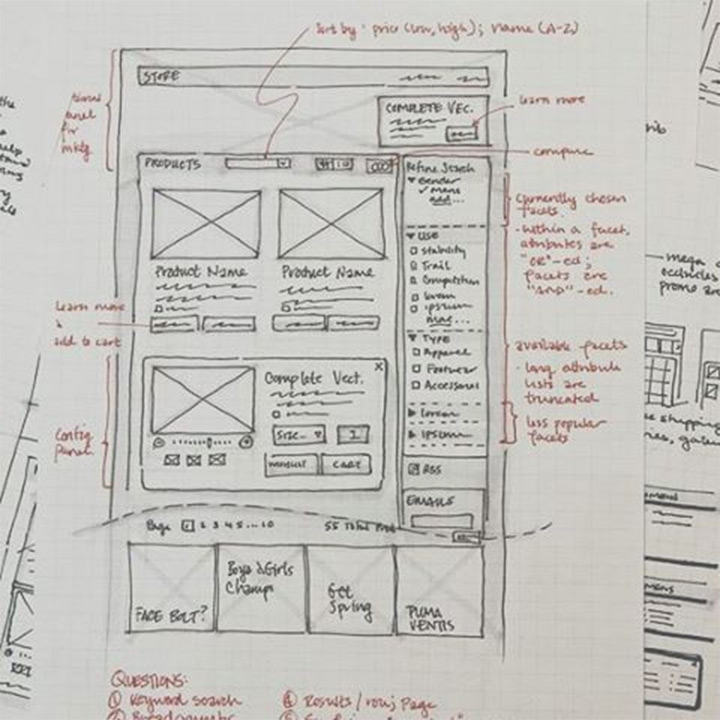 Sort by: price (low, high); name (A-Z)
STORE
COMPLETE VEC.
learn more
compare
PRODUCTS
Refine Search
Gender
Mens
add...
currently chosen
facets.
-within a facet,
attributes are
"OR"-ed;
facets are
"AND"-ed.
USE
Stability
Trail
Competition
lorem
ipsum
more...
Product Name
Product Name
Learn more
&
add to cart
TYPE
Apparel
Footwear
Accessories
available facets
- long attribute
lists are
truncated
Lorem
Ipsum
less popular
facets
Config
Panel
Complete Vect.
X
Size..
1
CART
RSS
EMAILS
Page 1 2 3 4 5 ... 10
55 Total
FACE BOLT?
Boys & Girls
Champs
Get
Spring
PUMA
VENTIS
QUESTIONS:
① Keyword search
④ Results / row; page
mega
promo are
shipping